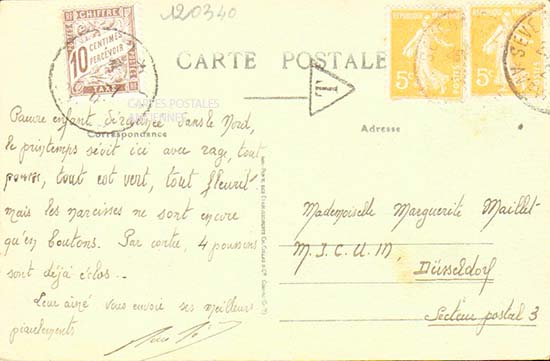 120340
CHIFFRE
10 CENTIMES
À PERCEVOIR
TAXE
REPUBLIQUE FRANÇAISE
5c
5c
CARTE POSTALE
T
CARTES POSTALES
ANCIENNES
Correspondance
Adresse
Pauvre enfant dans le Nord,
le printemps sévit ici avec rage, tout
pousse, tout est vert, tout fleurit
mais les narcisses ne sont encore
qu'en boutons. Par contre, 4 poussins
sont déjà éclos...
Leur aîné vous envoie ses meilleurs
piaulements
Mademoiselle Marguerite Maillet
M.I.C.U.M,
Düsseldorf
Secteur postal 3